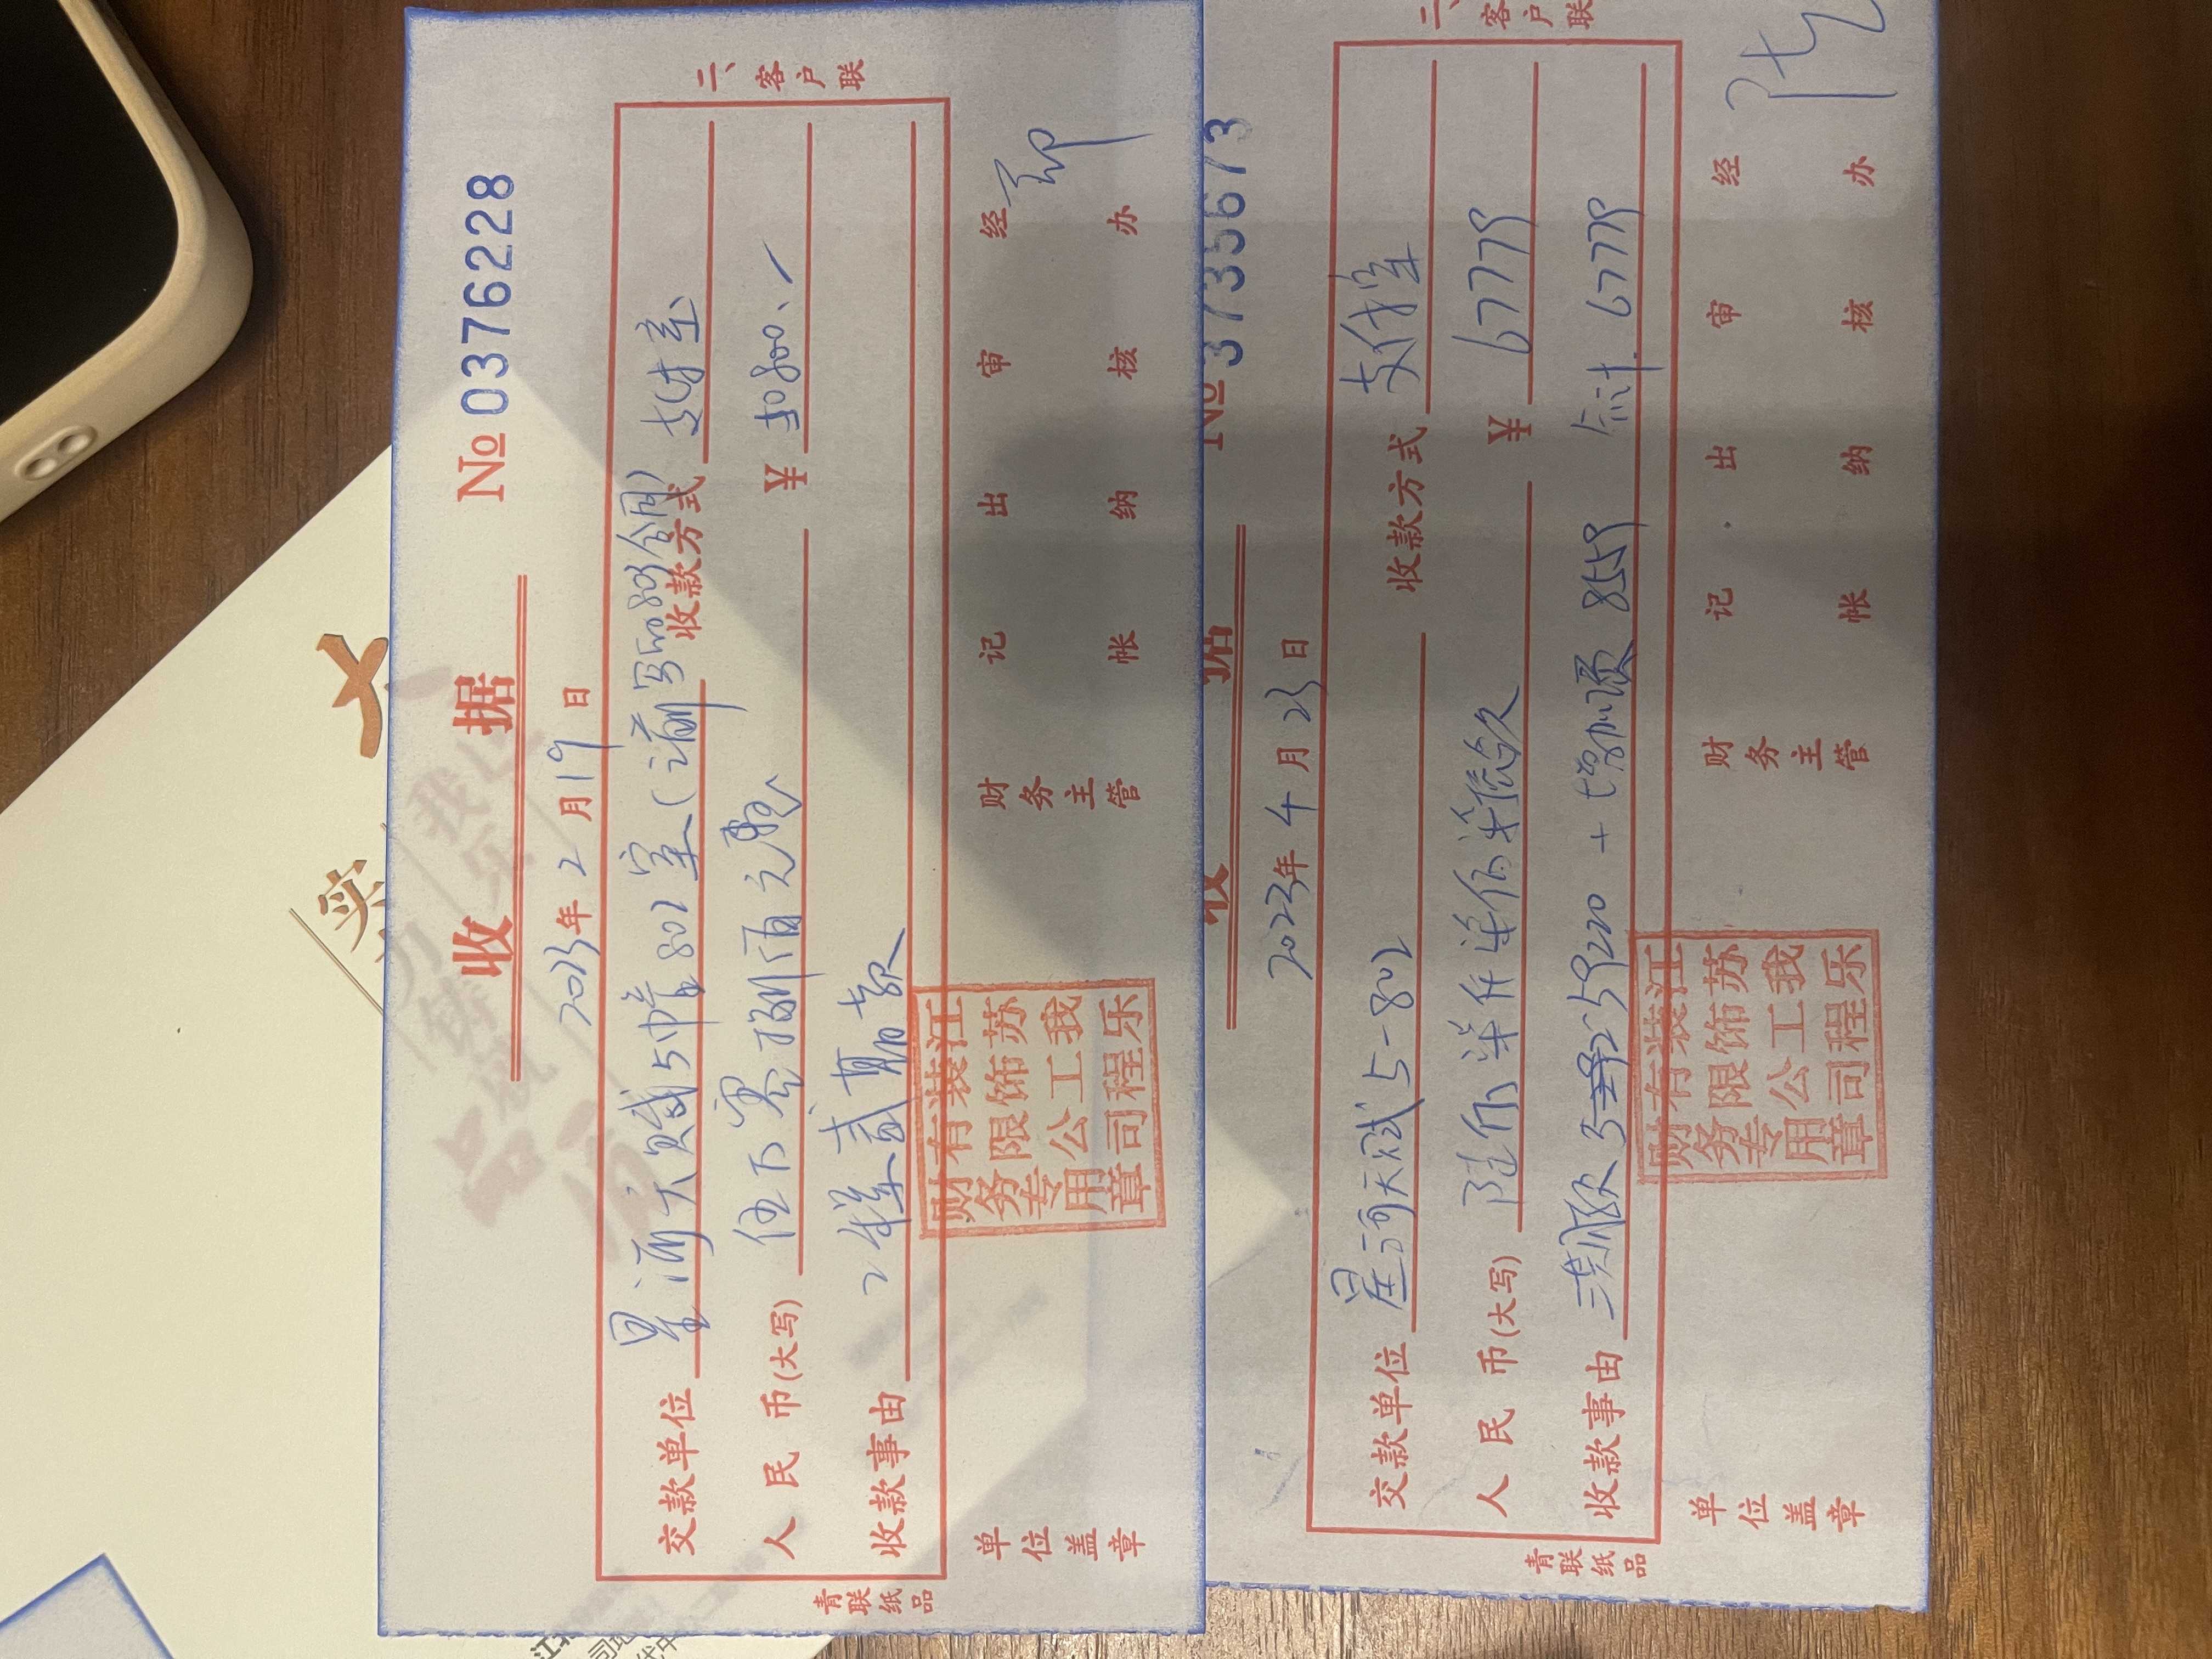 收 据 № 0376228
2023年2月19日
交款单位 星河天赋5幢802室(请写50800合同) 收款方式 支付宝
人民币(大写) 伍万零捌佰元整 ¥ 50800.
收款事由 工程款贰期款
二、客户联
单位盖章 财务主管 记帐 出纳 审核 经办
青联纸品
江苏我乐
装饰工程
有限公司
财务专用章
收 据 № 3735673
2023年4月23日
交款单位 星河天赋5-802 收款方式 支付宝
人民币(大写) ¥ 67779
收款事由 59220 + 增加项 8559 合计 67779
二、客户联
单位盖章 财务主管 记帐 出纳 审核 经办
青联纸品
江苏我乐
装饰工程
有限公司
财务专用章
实力铸就
品质